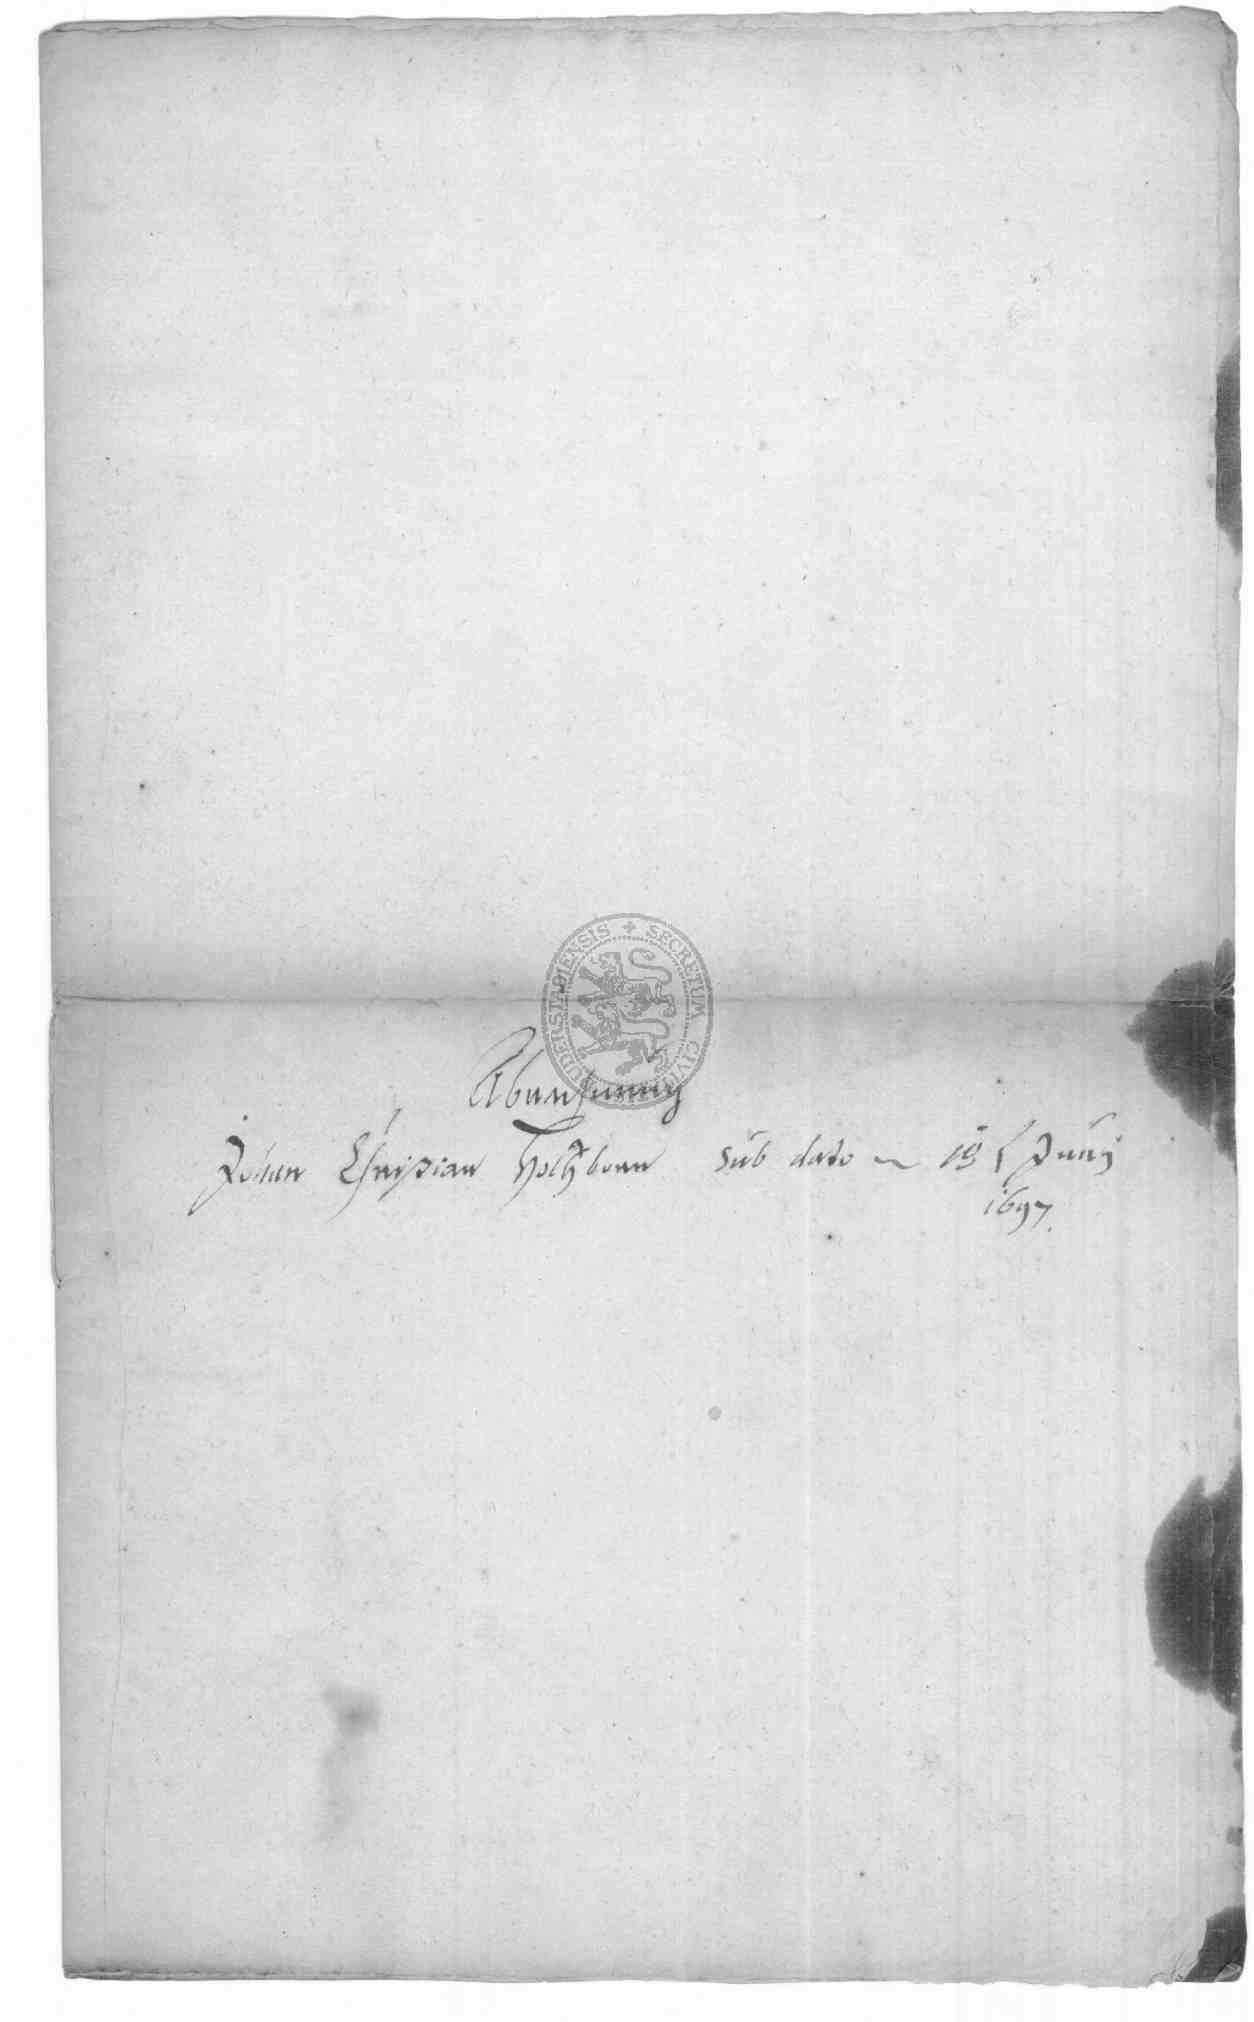 SECRETUM CIVIUM DUDERSTADIENSIS
Abrechnung
Johan Christian Holtzborn sub dato 15 Junij
1697.